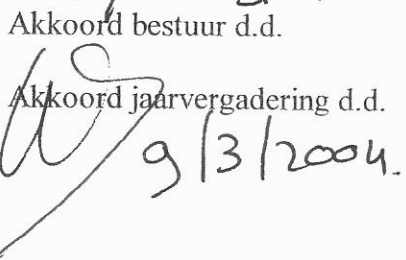 Akkoord bestuur d.d.
Akkoord jaarvergadering d.d.
9/3/2004.